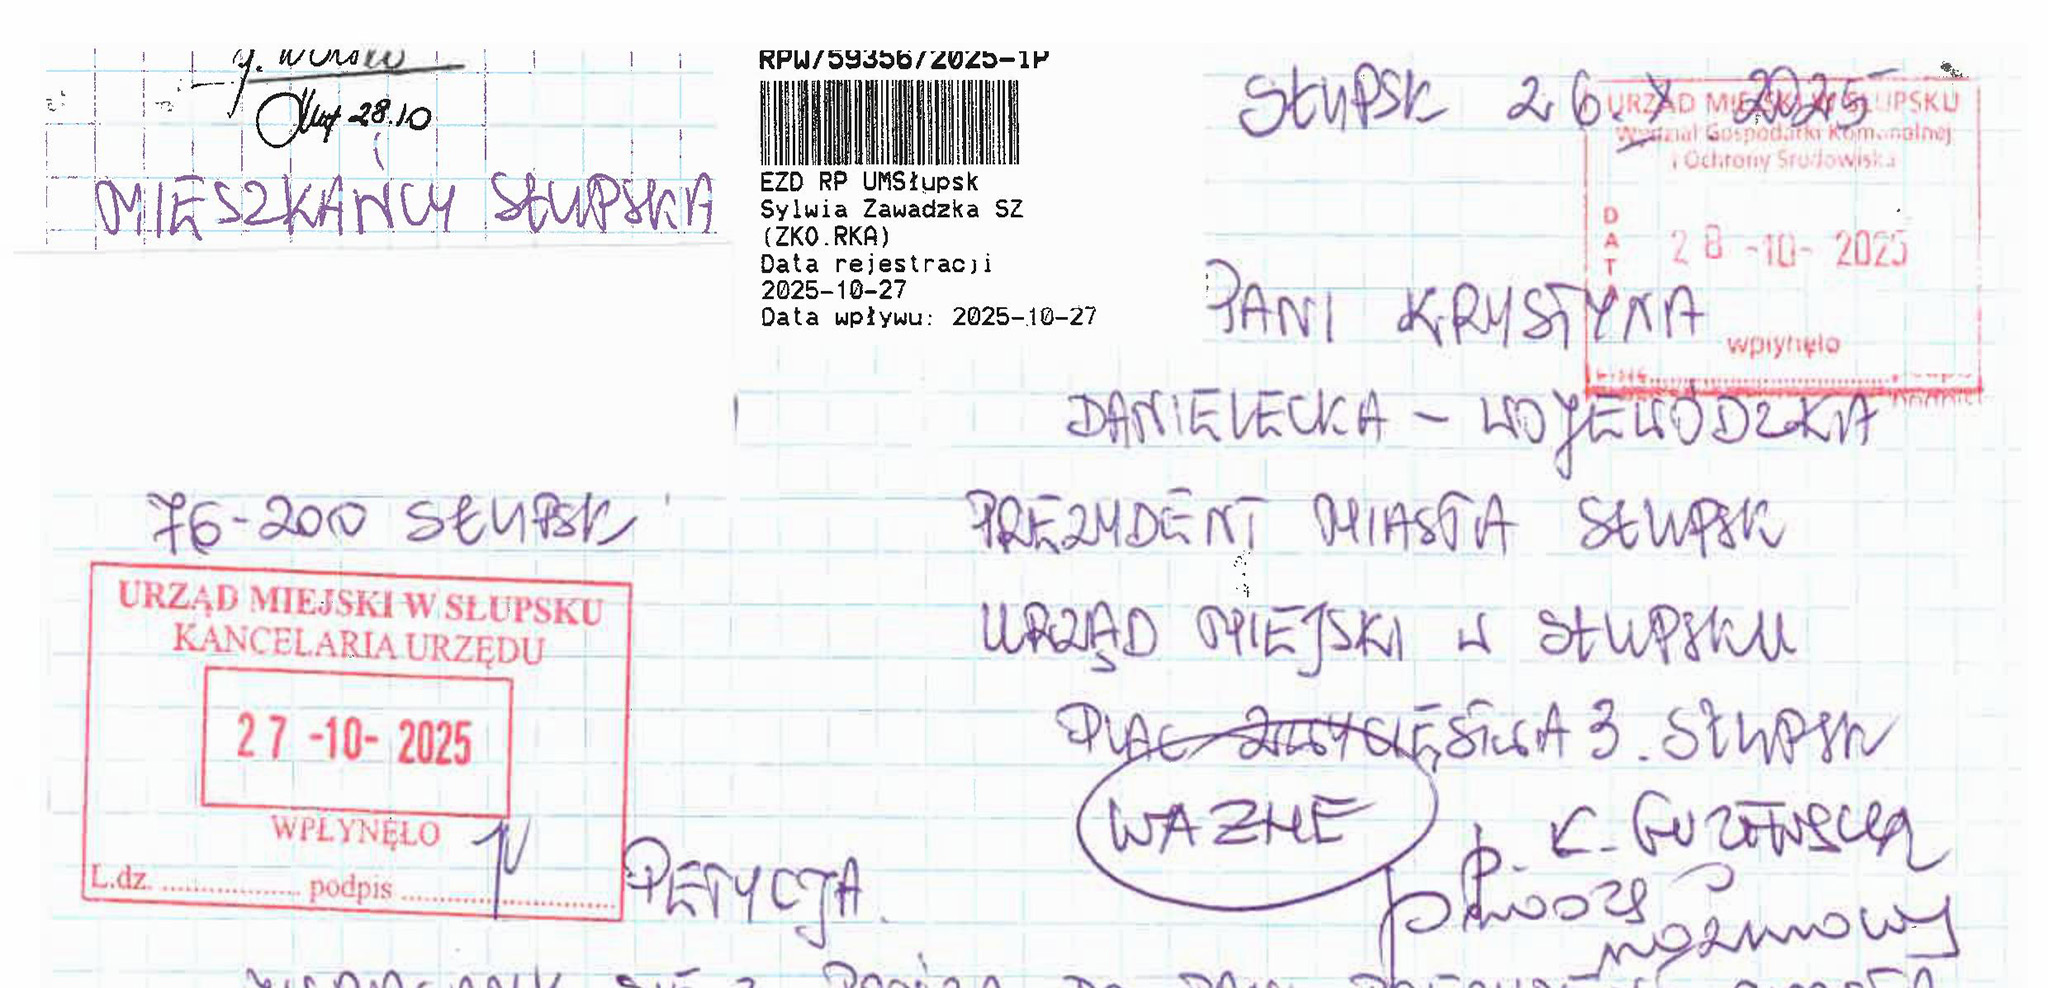 28.10
RPW/59356/2025-1P
EZD RP UMSłupsk
Sylwia Zawadzka SZ
(ZKO.RKA)
Data rejestracji
2025-10-27
Data wpływu: 2025-10-27
SŁUPSK 26.X 2025
URZĄD MIEJSKI W SŁUPSKU
Wydział Gospodarki Komunalnej
i Ochrony Środowiska
DATA
28 -10- 2025
wpłynęło
MIESZKAŃCY SŁUPSKA
PANI KRYSTYNA
DANIELECKA - WOJEWÓDZKA
76-200 SŁUPSK
PREZYDENT MIASTA SŁUPSK
URZĄD MIEJSKI W SŁUPSKU
PLAC ZWYCIĘSTWA 3. SŁUPSK
URZĄD MIEJSKI W SŁUPSKU
KANCELARIA URZĘDU
27 -10- 2025
WPŁYNĘŁO
L.dz. .................... podpis ..............................
WAŻNE
p. K.
proszę
rozmowy
PETYCJA.